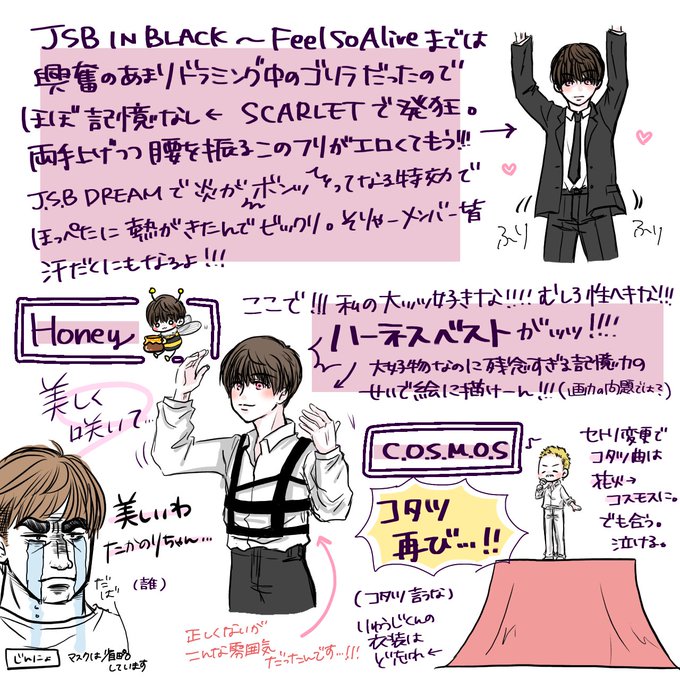 JSB IN BLACK ～ Feel So Alive までは
興奮のあまりドラミング中のゴリラだったので
ほぼ記憶なし← SCARLETで発狂。
両手上げつつ腰を振るこのフリがエロくてもう!!! →
J.S.B DREAMで炎がボンッってなる特効で
ほっぺたに熱がきたんでビックリ。そりゃーメンバー皆
汗だくにもなるよ!!!
ふり
ふり
Honey
ここで!!! 私の大ッッ好きな!!!! むしろ性ヘキな!!!
ハーネスベストがッッ!!!!
大好物なのに残念すぎる記憶力の
せいで絵に描けーん!!! (画力の問題では?)
美しく
咲いて…
C.O.S.M.O.S
セトリ変更で
コタツ曲は
花火→
コスモスに。
でも合う。
泣ける。
コタツ
再び…!!
美しいわ
たかのりちゃん…
(誰)
だばー
(コタツ言うな)
りゅうじくんの
衣装は
ど忘れ←
正しくないが
こんな雰囲気
だったんです…!!!
じんにょ
マスクは省略
しています